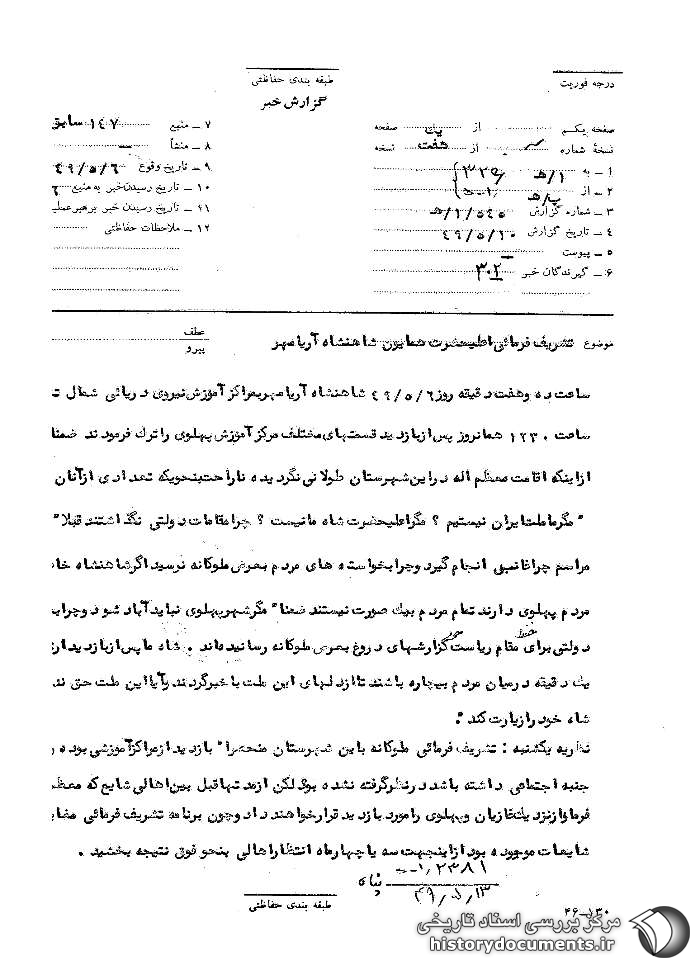 طبقه بندی حفاظتی
درجه فوریت
گزارش خبر
صفحه یکم از یک صفحه
نسخهٔ شماره از هفت نسخه
۱ ـ به ۱/هـ ۳۲۹
۲ ـ از
۳ ـ شماره گزارش ۵۴۵/۱/هـ
۴ ـ تاریخ گزارش ۴۹/۵/۱۰
۵ ـ پیوست
۶ ـ گیرندگان خبر ۳۰۲
۷ ـ منبع ۱۴۷ سابق
۸ ـ منشأ
۹ ـ تاریخ وقوع ۴۹/۵/۶
۱۰ ـ تاریخ رسیدن خبر به منبع ۶
۱۱ ـ تاریخ رسیدن خبر برهبر عملیـ
۱۲ ـ ملاحظات حفاظتی
موضوع تشریف فرمائی اعلیحضرت همایون شاهنشاه آریامهر
عطف
پیرو
ساعت ده وهفت دقیقه روز ۴۹/۵/۶ شاهنشاه آریامهر بمراکز آموزش نیروی دریائی شمال
ساعت ۱۲۳۰ همانروز پس از بازدید قسمتهای مختلف مرکز آموزش پهلوی را ترک فرمودند ضمنا
از اینکه اقامت معظم اله در این شهرستان طولانی نگردیده ناراحت بنحویکه تعدادی از آنان
" مگرما ملت ایران نیستیم ؟ مگر اعلیحضرت شاه ما نیست ؟ چرا مقامات دولتی نگذاشتند قبلا"
مراسم چراغانی انجام گیرد وچرا بخواسته های مردم بعرض ملوکانه نرسید اگر شاهنشاه خا
مردم پهلوی دارند تمام مردم بیک صورت نیستند ضمنا" مگر شهر پهلوی نباید آباد شود وچرا
دولتی برای حفظ مقام ریاست گزارشهای دروغ بعرض ملوکانه رسانیده‌اند . شاه ما پس از بازدید از
یک دقیقه در میان مردم بیچاره باشند تا از دلهای این ملت با خبر گردند و آیا این ملت حق ند
شاه خود را زیارت کند ".
نظریه یکشنبه : تشریف فرمائی ملوکانه باین شهرستان منحصرا" بازدید از مراکز آموزشی بوده و
جنبه اجتماعی داشته باشد در نظر گرفته نشده بود لکن از مدتها قبل بین اهالی شایع که معظم
فرما و از نزدیک غازیان و پهلوی را مورد بازدید قرار خواهند داد وچون برنامه تشریف فرمائی مغا
شایعات موجود بود از اینجهت سه یا چهار ماه انتظار اهالی بنحو فوق نتیجه بخشید .
۴۹/۵/۱۳
طبقه بندی حفاظتی
مرکز بررسی اسناد تاریخی
historydocuments.ir